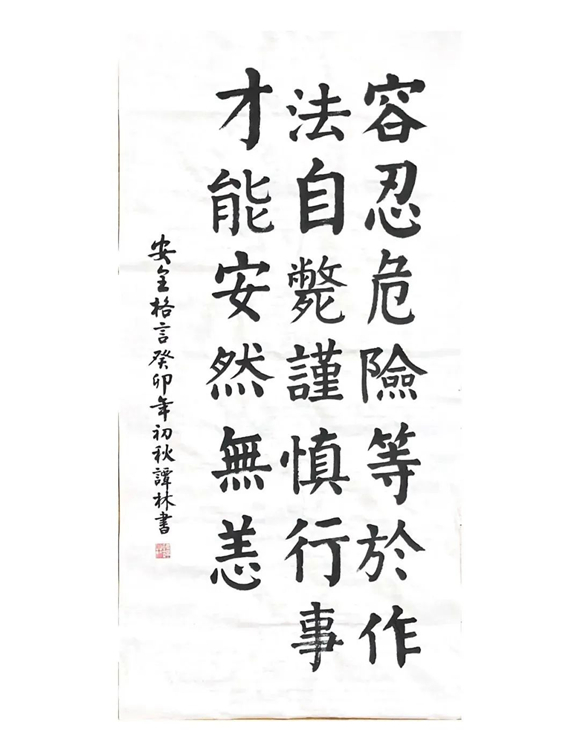 容忍危險等於作
法自斃謹慎行事
才能安然無恙
安全格言癸卯年初秋譚林書